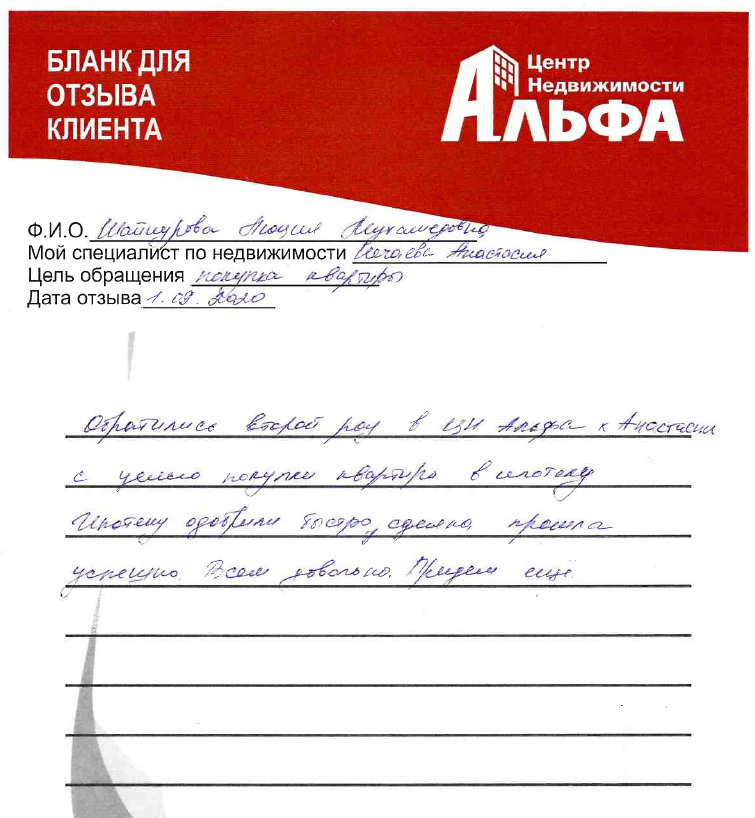 БЛАНК ДЛЯ
ОТЗЫВА
КЛИЕНТА
Центр
Недвижимости
АЛЬФА
Ф.И.О. Мухамедовна
Мой специалист по недвижимости Нечаева Анастасия
Цель обращения покупка квартиры
Дата отзыва 1.09.2020
Обратились второй раз в ЦН Альфа к Анастасии
с целью покупки квартиры в ипотеку
Ипотеку одобрили быстро, сделка прошла
успешно. Всем довольны. Придем еще.